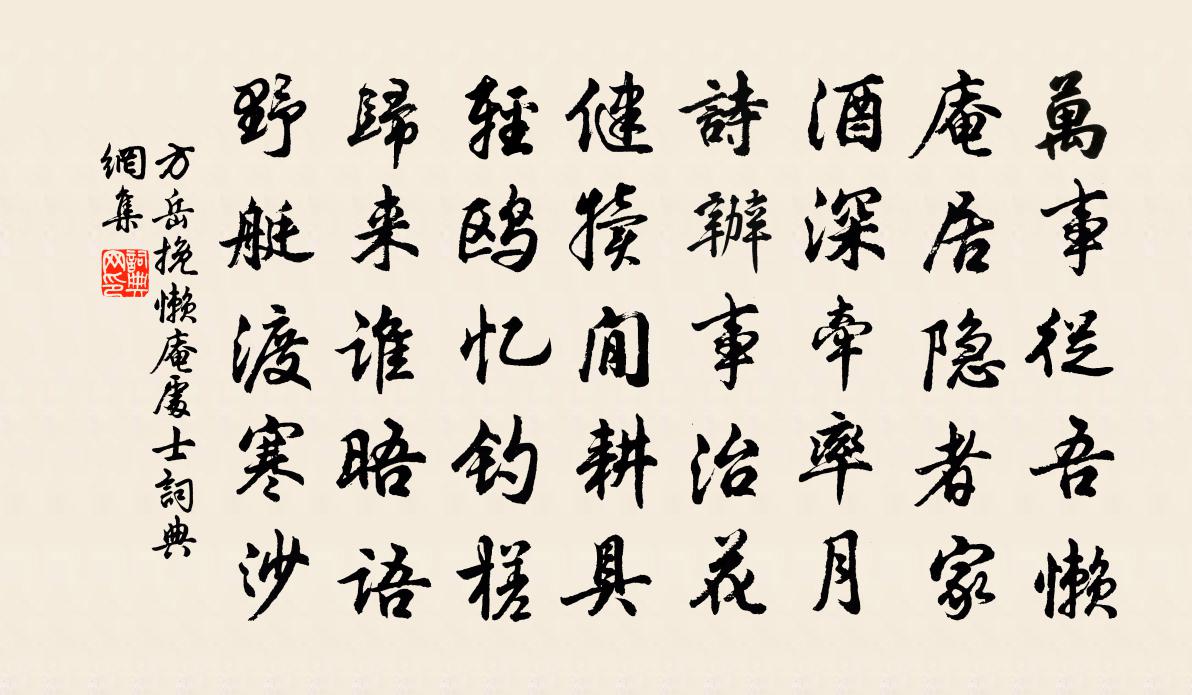 萬事從吾懶
庵居隐者家
酒深牽率月
詩辦事治花
健犢閒耕具
輕鸥忆钓槎
歸来谁晤语
野艇渡寒沙
方岳挽懒庵處士詞典
網集
詞典
网印